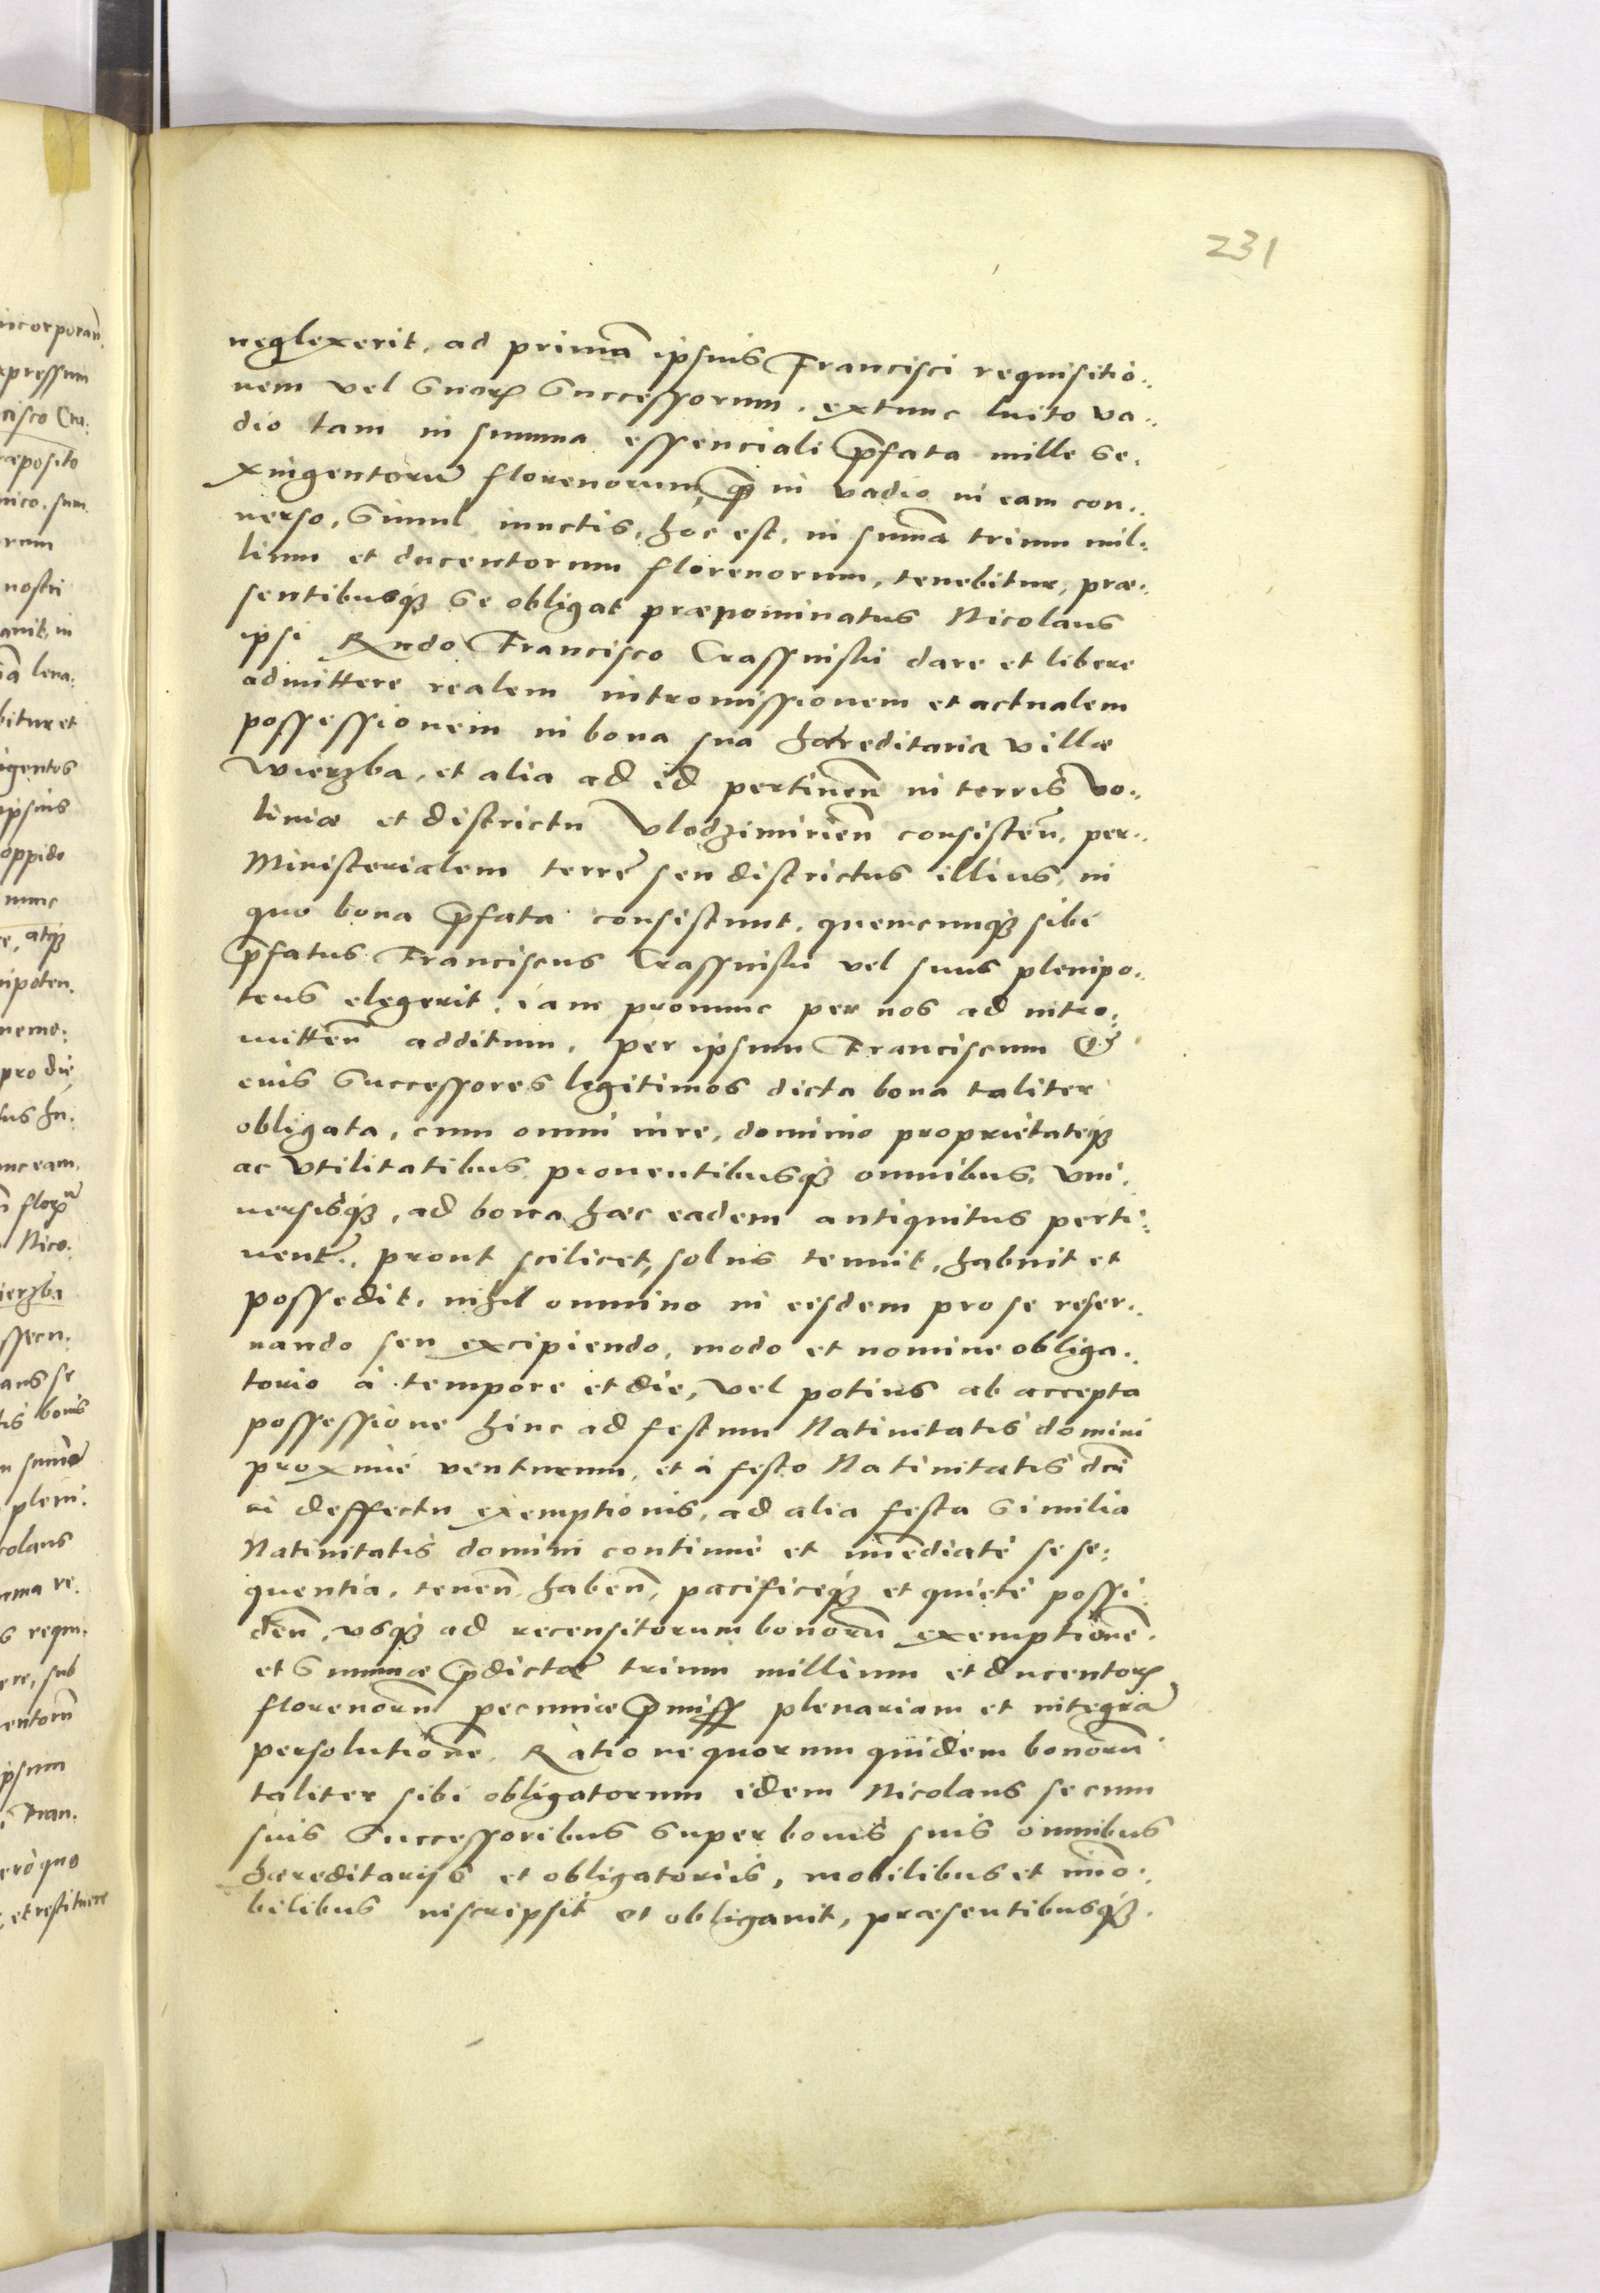 231
neglexerit, ad primā ipsius Francisci requisitio..
nem vel Suorꝝ Successorum, extunc luito va..
dio tam in summa essenciali p̄fata mille Se.
xingentorū florenorum, q̄ in vadio in eam con..
uerso, Simul iunctis, hoc est, in sumā trium mil:
lium et ducentorum florenorum, tenebitur, præ.
sentibusq̧ Se obligat prænominatus Nicolaus
ipsi Rndo Francisco Crassinski dare et libere
admittere realem intromissionem et actualem
possessionem in bona sua hæreditaria villæ
Wierzba, et alia ad id pertineñ in terris Vo..
liniæ et districtu Vlodzimirieñ consisteñ, per..
Ministerialem terre seu districtus illius, in
quo bona p̄fata consistunt, quemcunq̧ sibi
p̄fatus Franciscus Crassinski vel suus plenipo..
tens elegerit, iam pronunc per nos ad intro.
mitteñ additum, per ipsum Franciscum &
eius Successores legitimos dicta bona taliter
obligata, cum omni iure, dominio proprietateq̧
ac vtilitatibus prouentibusq̧ omnibus, vni.
uersisq̧, ad bona hæc eadem antiquitus perti:
nent., prout scilicet, solus tenuit, habuit et
possedit, nihil omnino in eisdem pro se reser..
uando seu excipiendo, modo et nomine obliga..
torio à tempore et die, vel potius ab accepta
possessione hinc ad festum Natiuitatis domini
proximé venturum, et à festo Natiuitatis dñi
in deffectu exemptionis, ad alia festa Similia
Natiuitatis domini continué et im̄ediaté sese:
quentia, teneñ habeñ, pacificeq̧ et quieté possi.
deñ, vsq̧ ad recensitorum bonorū exemptionē.
et Summæ p̄dictæ trium millium et ducentorꝝ
florenorū pecuniæ p̄miss plenariam et integrā
persolutionē. Ratione quorum quidem bonorū
taliter sibi obligatorum idem Nicolaus se cum
suis Successoribus Super bonis suis omnibus
hæreditarijs et obligatoriis, mobilibus et im̄o.
bilibus inscripsit et obligauit, præsentibusq̧.